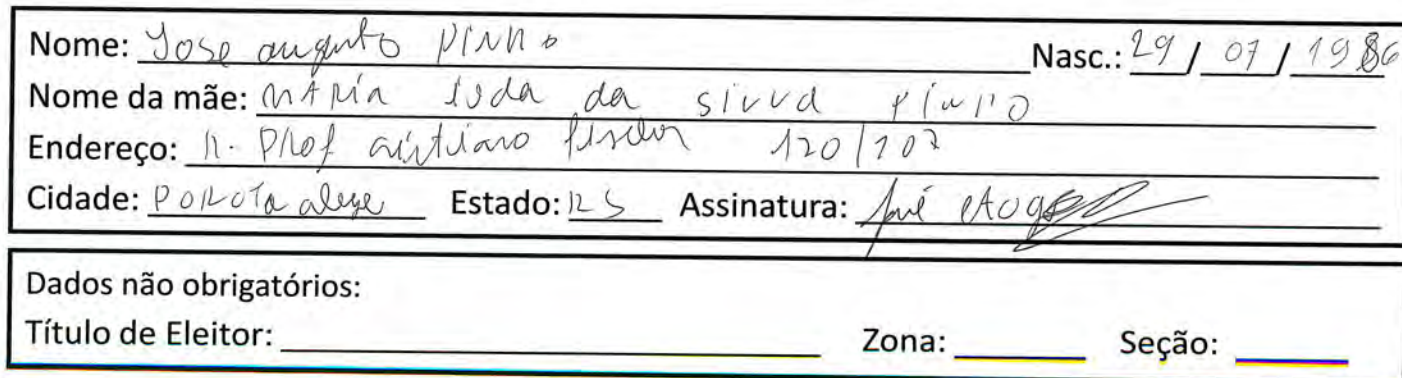 Nome: Jose augusto PINHO Nasc.: 29 / 07 / 1986
Nome da mãe: MARIA da silva PINHO
Endereço: R. Prof 120/102
Cidade: PORoTo alegre Estado: RS Assinatura: José
Dados não obrigatórios:
Título de Eleitor: Zona: Seção: